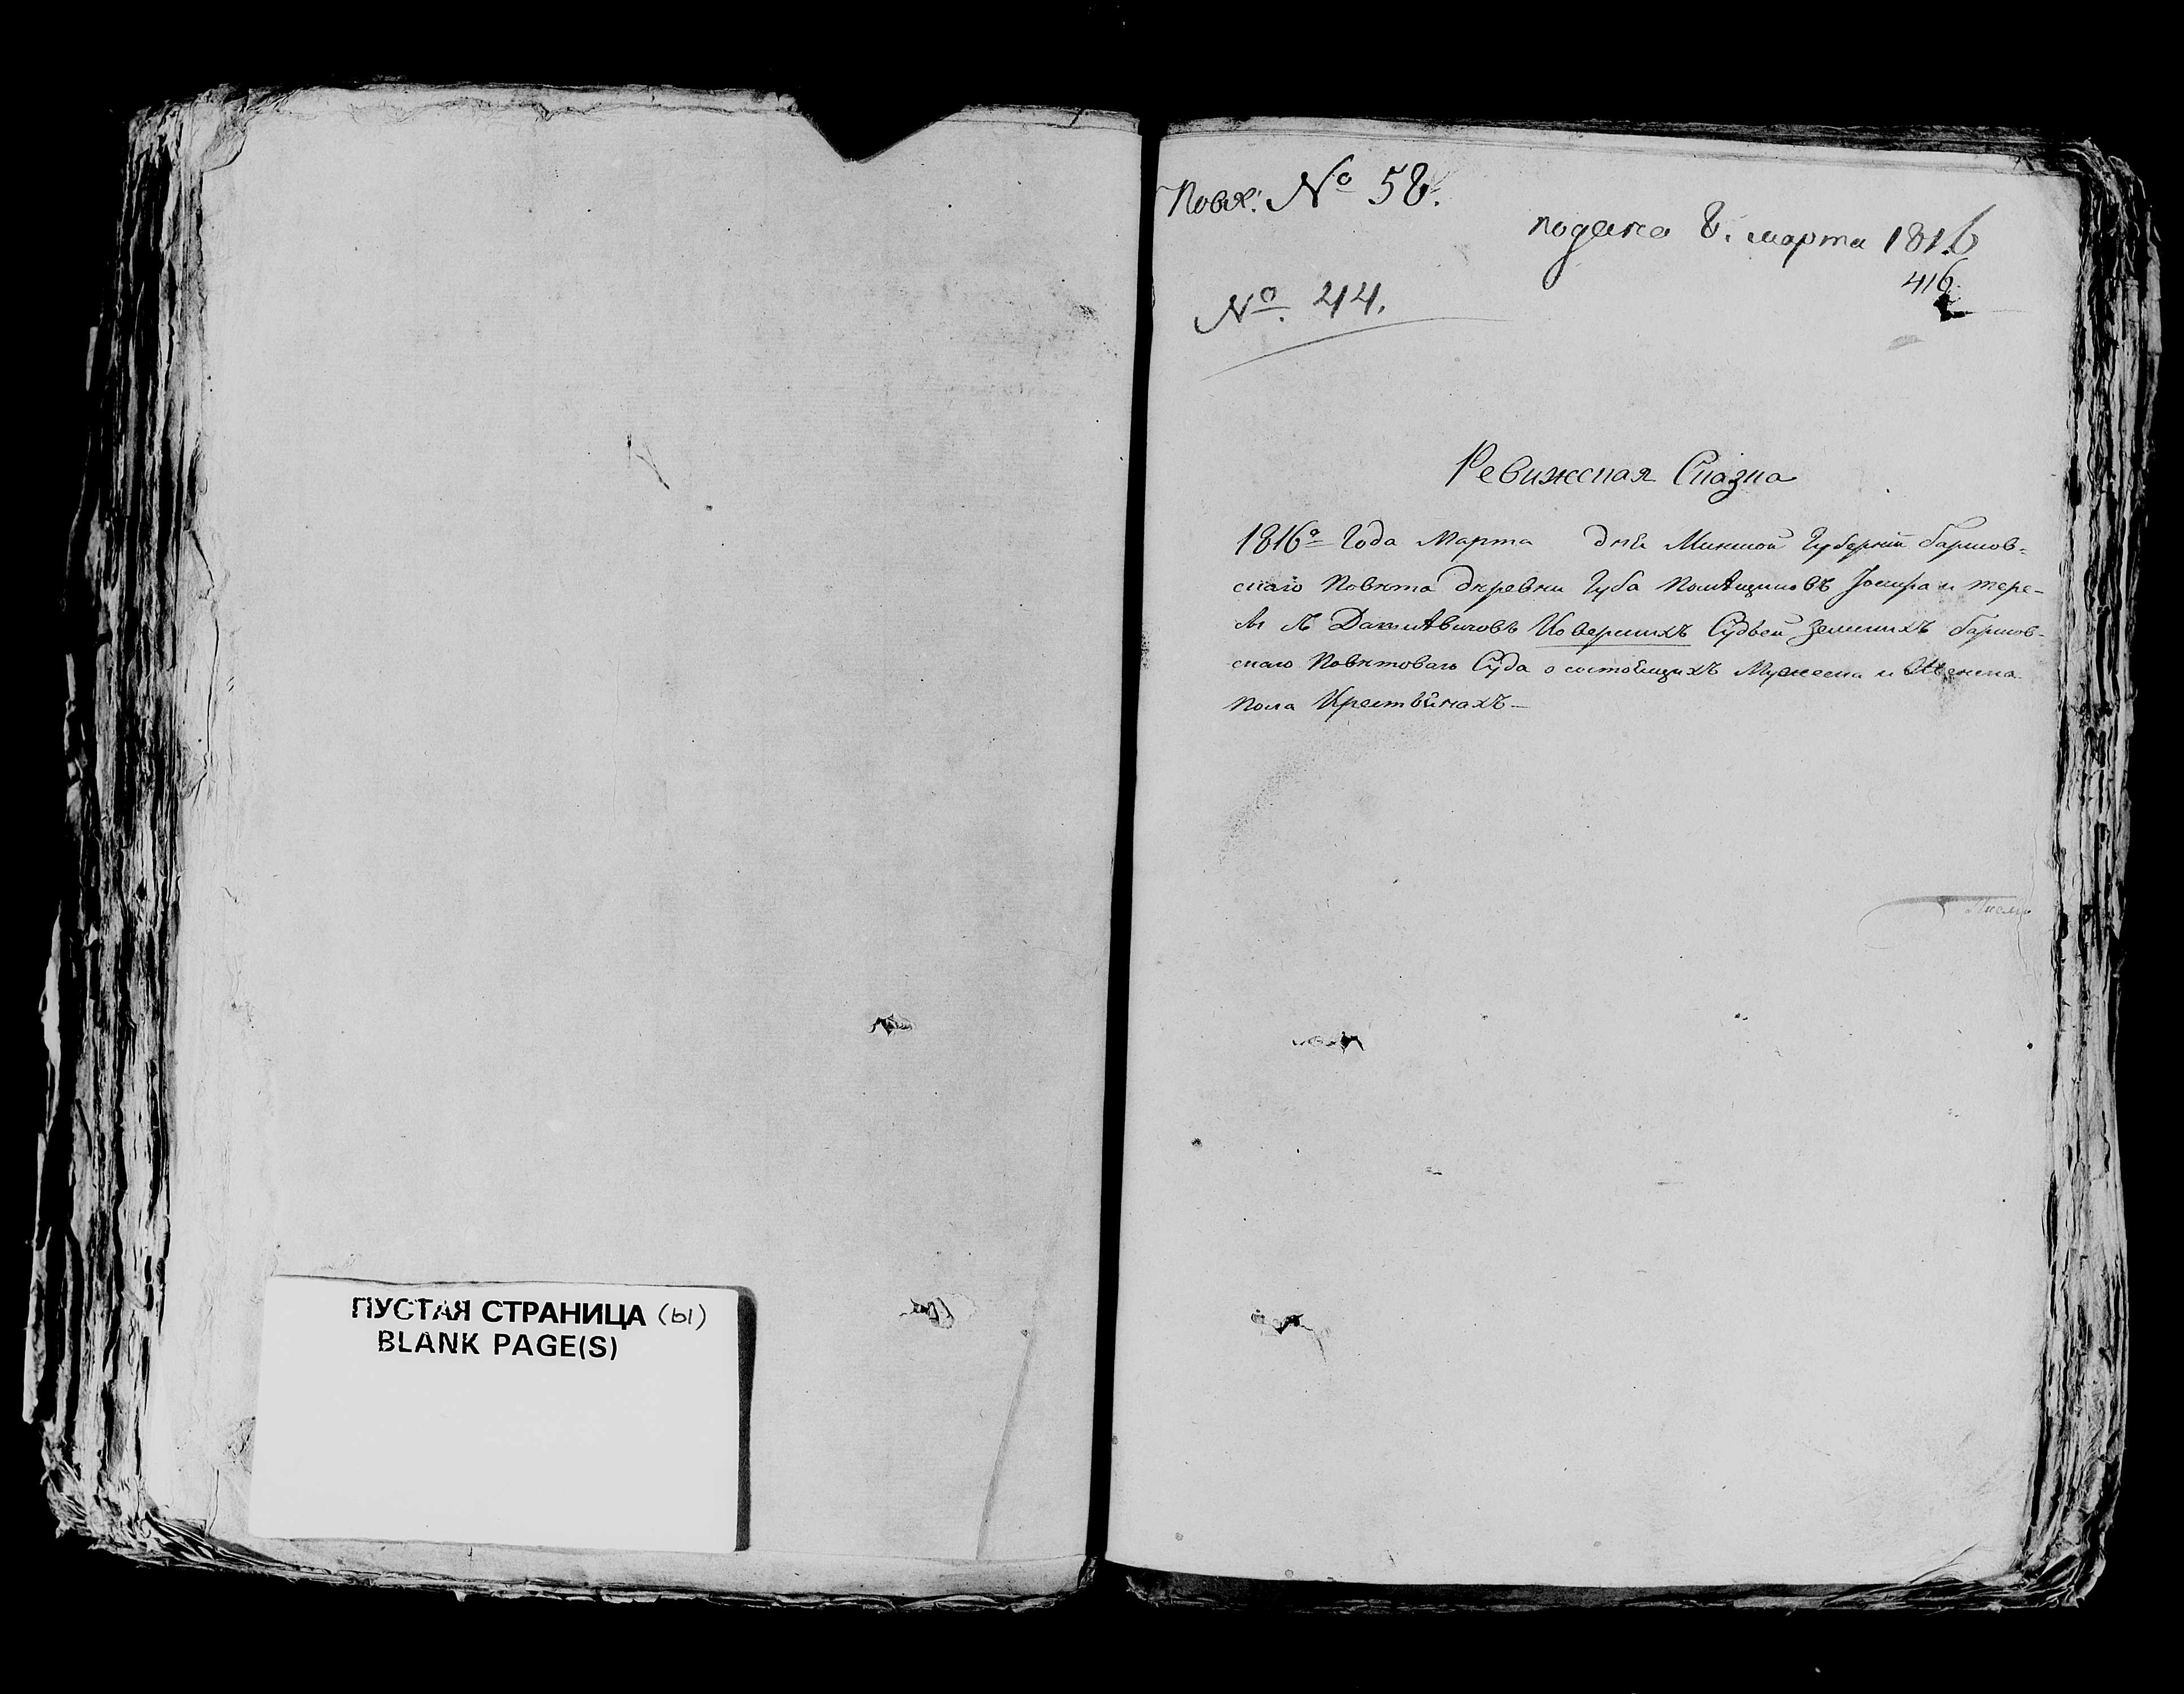 ПУСТАЯ СТРАНИЦА (ы)
BLANK PAGE(S)
№ 58.
подано 8. марта 1816
416
№. 44.
Ревижская Сказка
1816го Года Марта дня Минской Губернїи борисов-
скаго Повѣта деревни Губа Помѣщиковъ и Тере-
Судьей Земскихъ борисов-
скаго Повѣтоваго Суда о состоящихъ Мужеска и Женска
Пола Крестьянахъ—